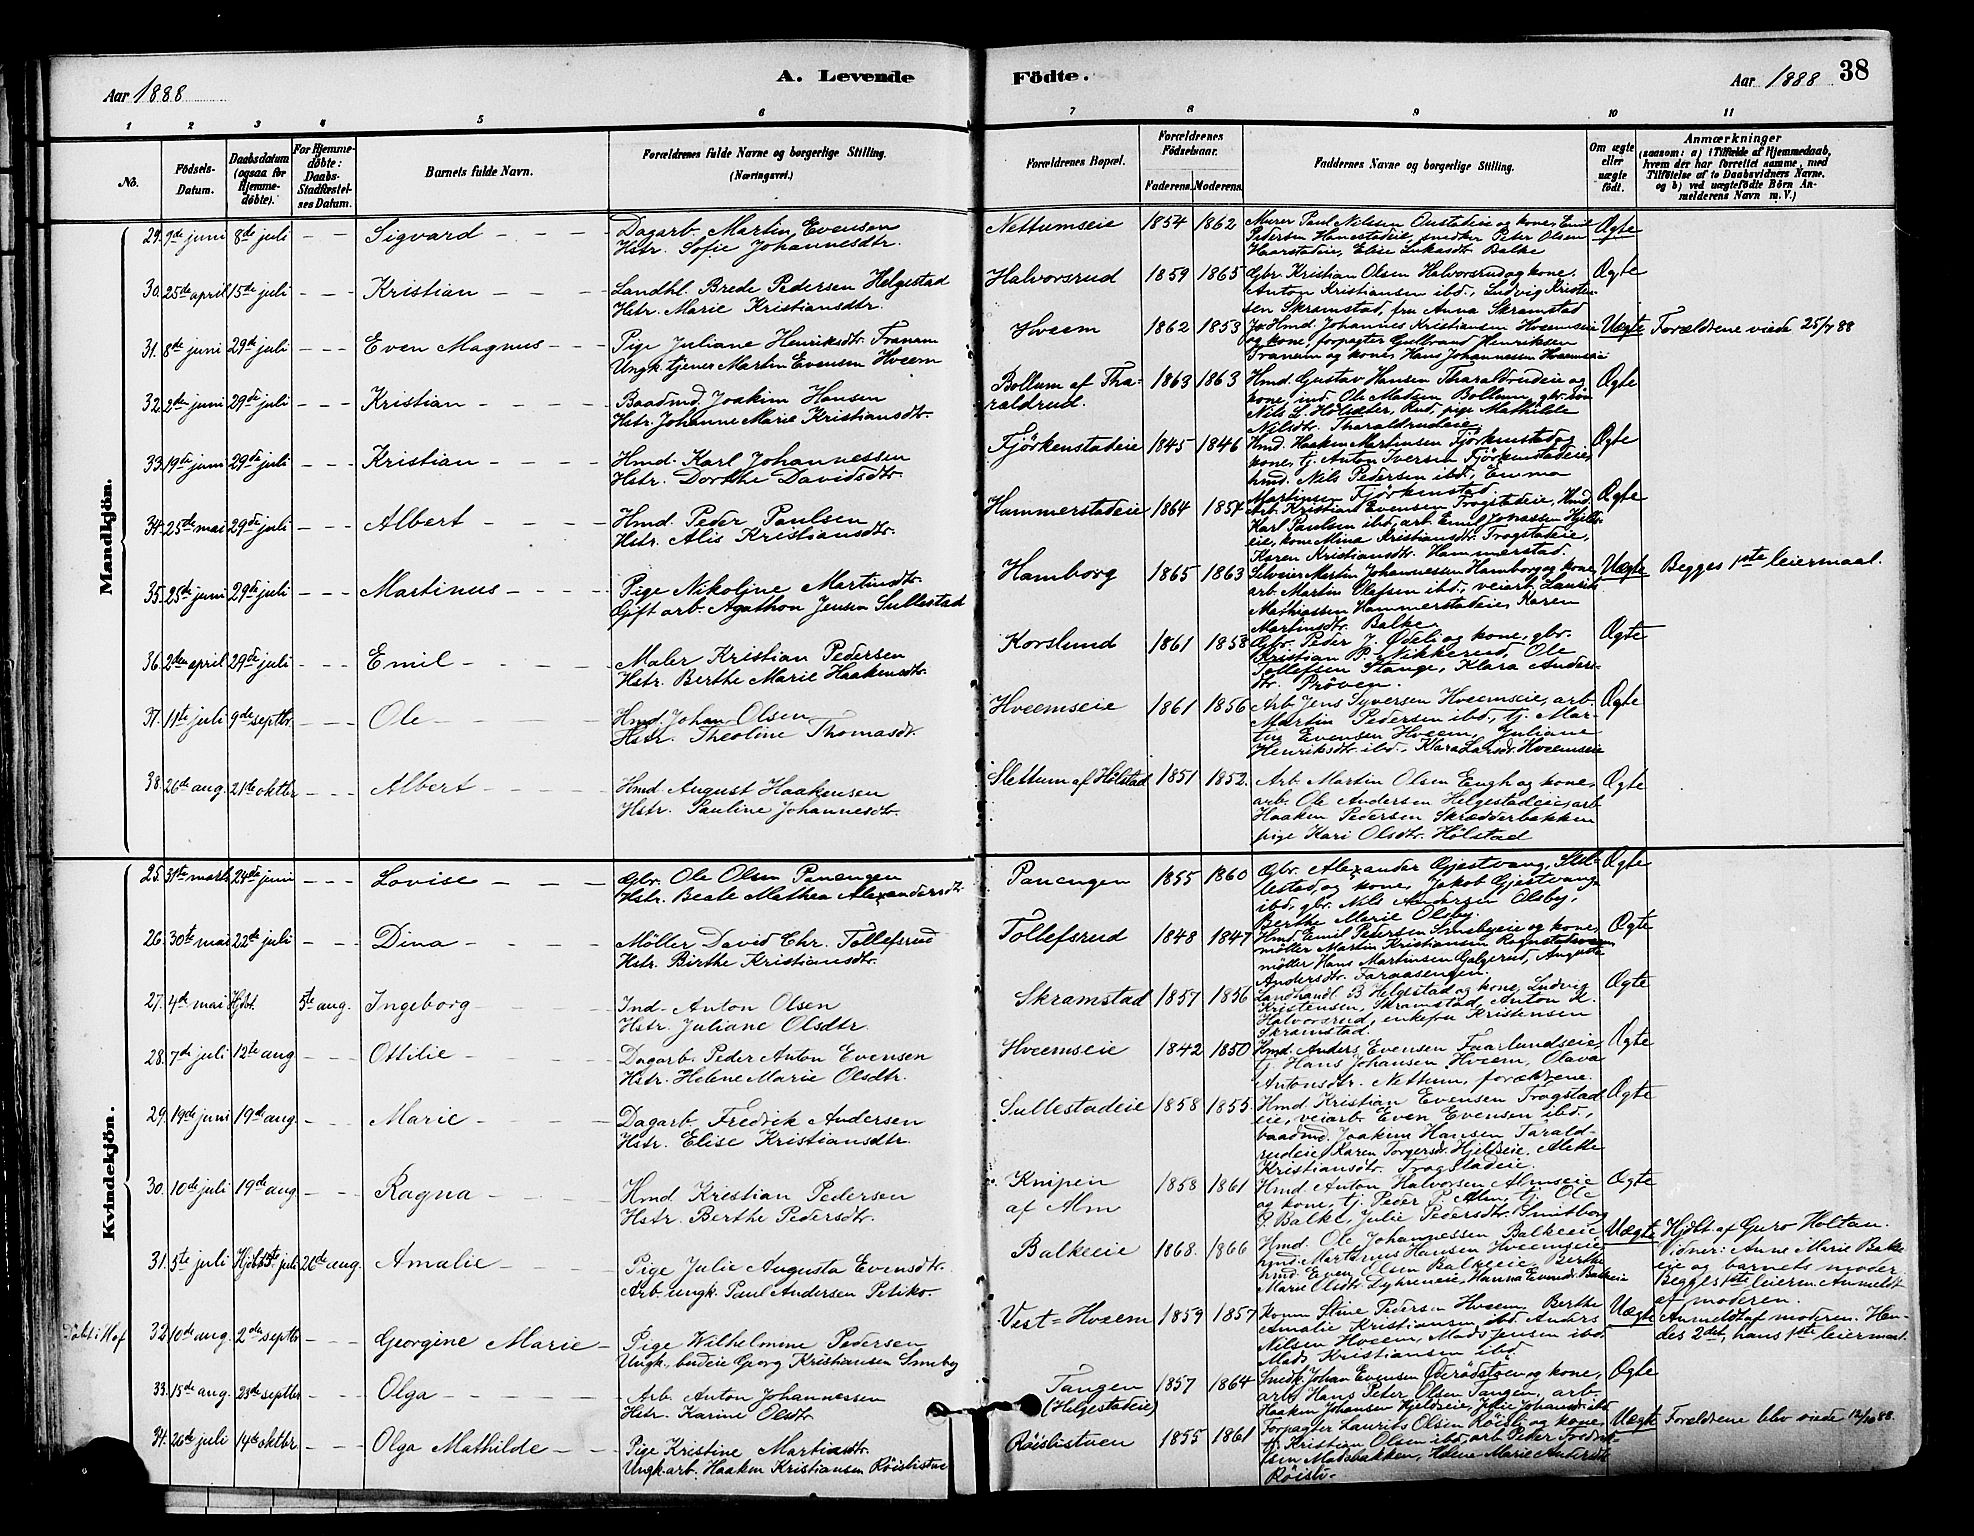 A. Levende Födte.
38
Aar 1888
Aar 1888
1 2 3 4 5 6 7 8 9 10 11
No.
Födsels-Datum.
Daabsdatum (ogsaa for Hjemmedøbte).
For Hjemmedøbte: Daabs-Stadfæstelses Datum.
Barnets fulde Navn.
Forældrenes fulde Navne og borgerlige Stilling. (Næringsvei.)
Forældrenes Bopæl.
Forældrenes Födselsaar.
Faderens. Moderens.
Faddernes Navne og borgerlige Stilling.
Om ægte eller uægte født.
Anmærkninger
(saasom: a) i Tilfælde af Hjemmedaab, hvem der har forrettet samme, med Tilføielse af to Daabsvidners Navne, og b) ved uægtefødte Börn Anmelderens Navn m. V.)
Mandkjön.
29. 9de juni 8de juli — — Sigvard — — Dagarb. Martin Evensen
Hstr. Sofie Johannesdtr.
Nettumseie 1854 1862 Murer Paul Nilsen Onstadeie og kone, Emil
Pedersen Hanestadeie, snedker Peter Olsen
Haarstadeie, Elise Lukasdtr. Balke
Ægte
30. 25de april 15de juli — — — Kristian — — — Landhl. Brede Pedersen Helgestad
Hstr. Marie Kristiansdtr.
Halvorsrud 1859 1865 Gbr. Kristian Olsen Halvorsrud og kone,
Anton Kristiansen ibd., Ludvig Kristensen
Skramstad, fru Anna Skramstad
Ægte
31. 8de juni 29de juli — — — Even Magnus — — — Pige Juliane Henriksdtr. Tranum
Ungk. tjener Martin Evensen Hveem
Hveem 1862 1853 Hmd. Johannes Kristiansen Hveemseie
og kone, forpagter Gulbrand Henriksen
Tranum og kone, Hans Johannessen Hveemseie
Uægte Forældrene viede 25/7 88
32. 2den juni 29de juli — — — Kristian — — — — Baadmd. Joakim Hansen
Hstr. Johanne Marie Kristiansdtr.
Bollum af Tharaldrud. 1863 1863 Hmd. Gustav Hansen Tharaldrudeie og
kone, ind. Ole Madsen Bollum, gbr. søn
Nils L. Hölsæter, Rud, pige Mathilde
Nilsdtr. Tharaldrudeie
Ægte
33. 19de juni 29de juli — — — Kristian — — — — Hmd. Karl Johannessen
Hstr. Dorthe Davidsdtr.
Fjörkenstadeie 1845 1846 Hmd. Haaken Martinsen Fjörkenstad og
kone, tj. Anton Iversen Fjörkenstadeie,
hmd. Nils Pedersen ibd., Emma
Martinsen Fjörkenstad
Ægte
34. 25de mai 29de juli — — — Albert — — — — Hmd. Peder Paulsen
Hstr. Alis Kristiansdtr.
Hammerstadeie 1864 1854 Arb. Kristian Evensen Frogstadeie, Hmd.
Karl Paulsen ibd., arb. Emil Jonassen Hjelseie,
kone Mina Kristiansdtr. Frogstadeie,
Karen Kristiansdtr. Hammerstad.
Ægte
35. 25de juni 29de juli — — — Martinus — — — — Pige Nikoline Martinsdtr.
Gift arb. Agathon Jensen Sullestad
Hamborg 1865 1863 Selveier Martin Johannessen Hamborg og kone,
arb. Martin Olafsen ibd., veiarb. Laurits
Mathiassen Hammerstadeie, Karen
Martinsdtr. Balke
Uægte Begges 1ste leiermaal.
36. 2den april 29de juli — — — Emil — — — — Maler Kristian Pedersen
Hstr. Berthe Marie Haakensdtr.
Korslund 1861 1858 Gbr. Peder J. Ødeli og kone, gbr.
Kristian P. Nikkerud, Ole
Tollefsen Stange, Klara Andersdtr.
Pröven.
Ægte
37. 11te juli 9de septbr. — — — Ole — — — — Hmd. Johan Olsen
Hstr. Theoline Thomasdtr.
Hveemseie 1861 1856 Arb. Jens Syversen Hveemseie, arb.
Martin Pedersen ibd., tj. Martin
Evensen Hveem, Juliane
Henriksdtr. ibd., Klara Larsdtr. Hveemseie
Ægte
38. 26de aug. 21de oktbr — — — Albert — — — — Hmd. August Haakensen
Hstr. Pauline Johannesdtr.
Slettum af Hölstad 1851 1852. Arb. Martin Olsen Engh og kone,
arb. Ole Andersen Helgestadeie, arb.
Haaken Pedersen Skrædderbakken
pige Kari Olsdtr. Hölstad
Ægte
Kvindekjön.
25. 31te marts 24de juni — — — Lovise — — — Gbr. Ole Olsen Panengen
Hstr. Beate Mathea Alexandersdtr
Panengen 1855 1860 Gbr. Alexander Gjestvang, Sullestad
og kone, Jakob Gjestvang
ibd., gbr. Nils Andersen Olsby,
Berthe Marie Olsby.
Ægte
26. 30te mai 22de juli — — — Dina — — — — Möller David Chr. Tollefsrud
Hstr. Birthe Kristiansdtr.
Tollefsrud 1848 1847 Hmd. Emil Pedersen Smebyeie og kone,
möller Martin Kristiansen
möller Hans Martinsen Galgerud, Auguste
Andersdtr. Faraasengen.
Ægte
27. 4de mai Hjdbt. 5te aug. Ingeborg — — — Ind. Anton Olsen
Hstr. Juliane Olsdtr.
Skramstad 1857 1856 Landhandl. B. Helgestad og kone, Ludvig
Kristensen, Skramstad, Anton K.
Halvorsrud, enkefru Kristensen
Skramstad.
Ægte
28. 7de juli 12te aug — — — Ottilie — — — — Dagarb. Peder Anton Evensen
Hstr. Helene Marie Olsdtr.
Hveemseie 1842 1850 Hmd. Anders Evensen Faarlundseie,
tj. Hans Johansen Hveem, Olava
Antonsdtr. Nettum, forældrene.
Ægte
29. 19de juni 19de aug. — — — Marie — — — — Dagarb. Fredrik Andersen
Hstr. Elise Kristiansdtr.
Sullestadeie 1858 1855. Hmd. Kristian Evensen Frogstadeie,
veiarb. Even Evensen ibd.,
baadmd. Joakim Hansen Taraldrudeie,
Karen Torgersdtr. Hjelseie, Alette
Kristiansdtr. Frogstadeie.
Ægte
30. 10de juli 19de aug — — — Ragna — — — — Hmd. Kristian Pedersen
Hstr. Berthe Pedersdtr.
Knipen af Alm 1858 1861 Hmd. Anton Halvorsen Almseie
og kone, tj. Peder P. Alm, tj. Ole
P. Balke, Julie Pedersdtr. Smidborg
Ægte
31. 5te juli Hjdbt 5te juli 26de aug. Amalie — — — Pige Julie Augusta Evensdtr.
Arb. ungk. Paul Andersen Petiko.
Balkeeie 1868. 1866 Hmd. Ole Johannessen Balkeeie,
hmd. Martinus Hansen Hveemseie,
hmd. Even Olsen Balkeeie, Berthe
Marie Olsdtr. Dyhreneie, Hanna Evensdtr. Balkeeie
Uægte Hjdbt. af Guro Holtan.
Vidner: Anne Marie Balkeeie
og barnets moder
Begges 1ste leierm. Anmeldt
af moderen.
Döbt i Hof 32. 10de aug. 2den septbr — — — Georgine Marie — Pige Wilhelmine Pedersen
Ungk. Georg Kristiansen Smeby
Vest=Hveem 1859 1857 Konen Stine Pedersen Hveem, Berthe
Amalie Kristiansen ibd. Anders
Nilsen Hveem, Mads Jensen ibd.
Mads Kristiansen ibd.
Uægte Anmeldt af moderen. Hendes
2det, hans 1ste leiermaal.
33. 15de aug. 23de septbr — — — Olga — — — — Arb. Anton Johannessen
Hstr. Karine Olsdtr
Tangen (Helgestadeie) 1857 1864 Snedk. Johan Evensen og kone,
arb. Hans Peter Olsen Tangen, arb.
Haaken Johansen Hjelseie, Julie Johansdtr. ibd
Ægte
34. 26de juli 14de oktbr. — — — Olga Mathilde — — Pige Kristine Martinsdtr.
Ungk. arb. Haaken Kristiansen Röislistuen
Röislistuen 1855 1861 Forpagter Laurits Olsen Röisli og kone,
tj. Kristian Olsen ibd., arb. Peter Fredriksen
Madsbakken, Helene Marie Andersdtr
Röisli.
Uægte Forældrene blev viede 12/10 88.